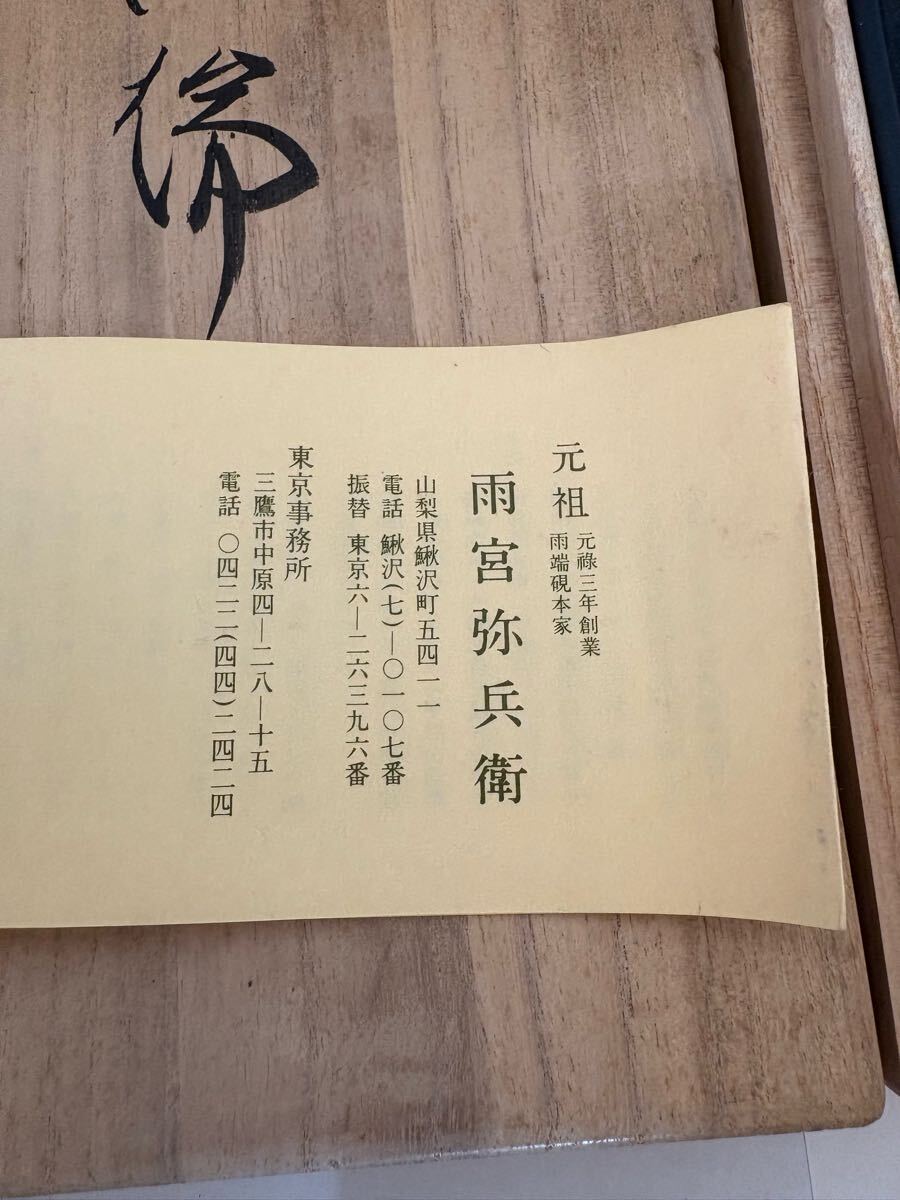 倫
元祖
元祿三年創業
雨端硯本家
雨宮弥兵衛
山梨県鰍沢町五四一一
電話 鰍沢(七)—〇一〇七番
振替 東京六—二六三九六番
東京事務所
三鷹市中原四—二八—十五
電話 〇四二二(四四)二四二四